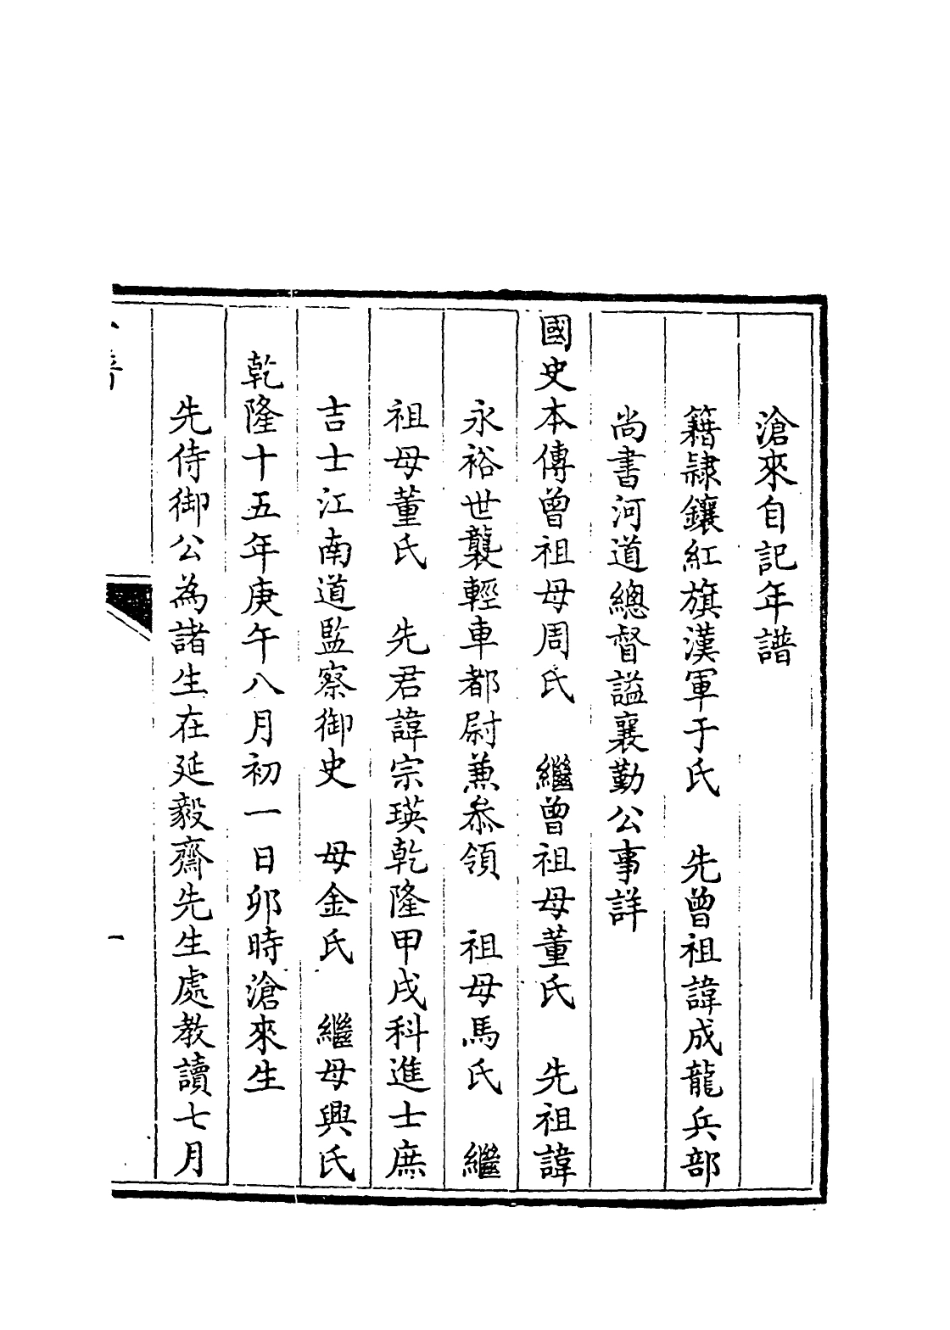 滄來自記年譜
籍隸鑲紅旗漢軍于氏　先曾祖諱成龍兵部
尚書河道總督謚襄勤公事詳
國史本傳曾祖母周氏　繼曾祖母董氏　先祖諱
永裕世襲輕車都尉兼叅領　祖母馬氏　繼
祖母董氏　先君諱宗瑛乾隆甲戌科進士庶
吉士江南道監察御史　母金氏　繼母興氏
乾隆十五年庚午八月初一日卯時滄來生
先侍御公為諸生在延毅齋先生處教讀七月
一